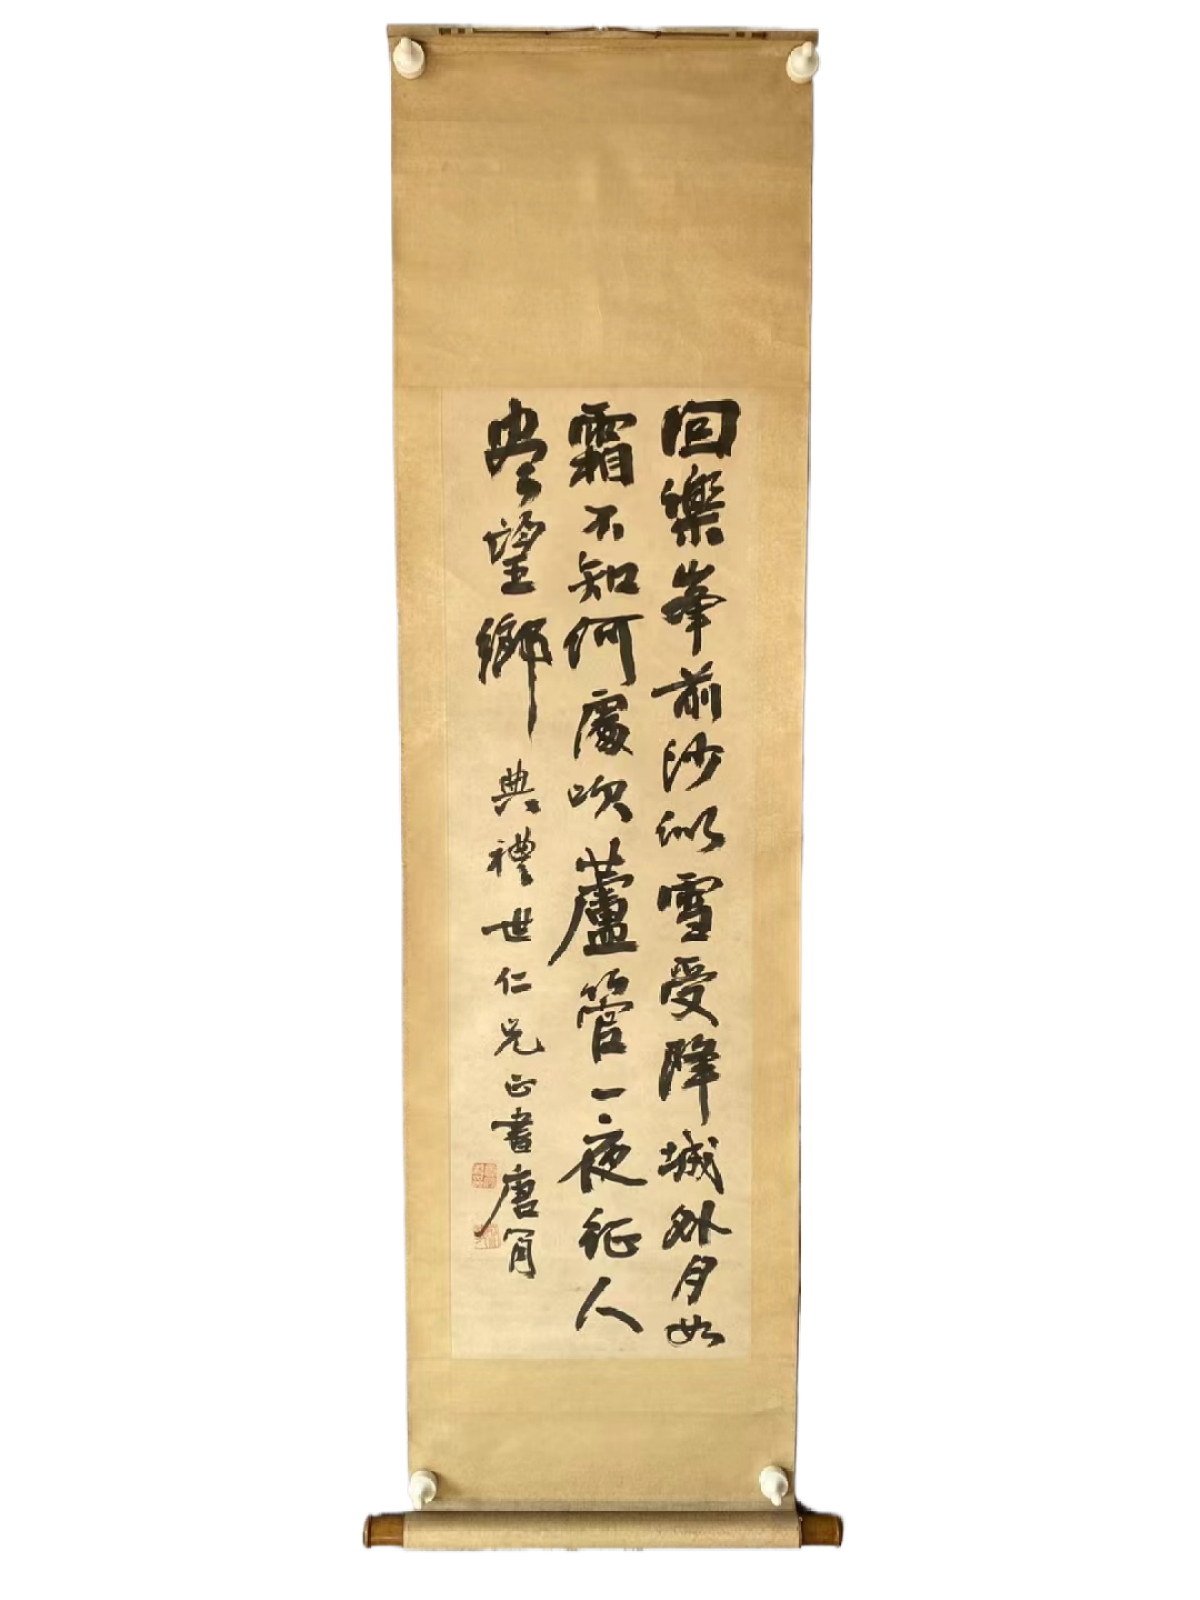 回樂峯前沙似雪受降城外月如
霜不知何處吹蘆管一夜征人
盡望鄉 典禮世仁兄正書唐肯